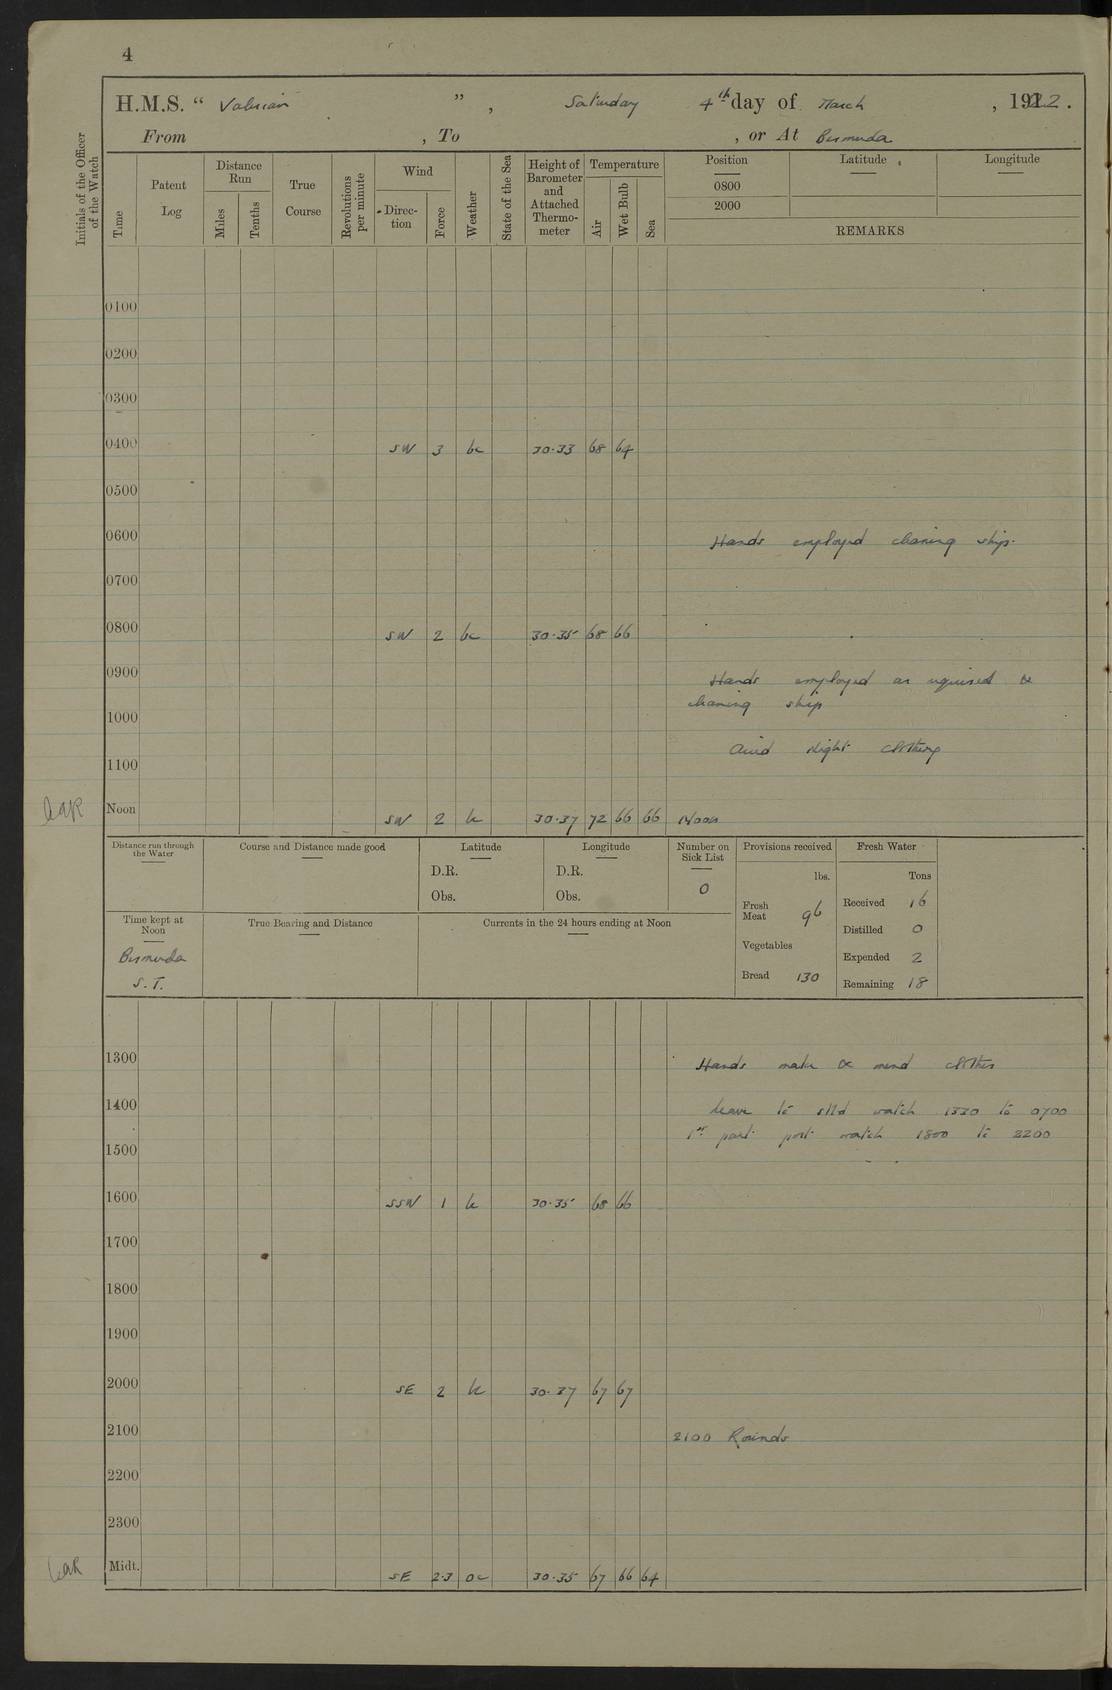 4
H.M.S. “ Valerian ” , Saturday 4th day of March , 1922 .
From , To , or At Bermuda
Initials of the Officer of the Watch
Time
Patent Log
Distance Run
Miles
Tenths
True Course
Revolutions per minute
Wind
Direction
Force
Weather
State of the Sea
Height of Barometer and Attached Thermometer
Temperature
Air
Wet Bulb
Sea
Position Latitude Longitude
0800
2000
REMARKS
0100
0200
0300
0400 SW 3 bc 30·33 68 64
0500
0600 Hands employed cleaning ship.
0700
0800 SW 2 bc 30·35 68 66
0900 Hands employed as required &
cleaning ship
1000
Aired night clothing
1100
Noon SW 2 bc 30·37 72 66 66 Noon
Distance run through the Water
Course and Distance made good
Latitude
D.R.
Obs.
Longitude
D.R.
Obs.
Number on Sick List
0
Provisions received
lbs.
Fresh Meat 96
Vegetables
Bread 130
Fresh Water
Tons
Received 16
Distilled 0
Expended 2
Remaining 18
Time kept at Noon
Bermuda
S.T.
True Bearing and Distance
Currents in the 24 hours ending at Noon
1300 Hands make & mend clothes
1400 Leave to stbd watch 1330 to 0700
1st part port watch 1800 to 2200
1500
1600 SSW 1 bc 30·35 68 66
1700
1800
1900
2000 SE 2 bc 30·37 67 67
2100 2100 Rounds
2200
2300
Midt. SE 2·3 oc 30·35 67 66 64